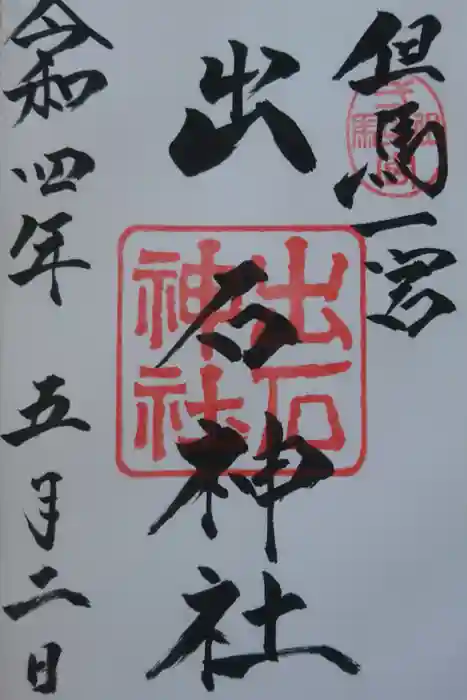 但馬一宮
出石神社
出石
神社
令和四年 五月二日